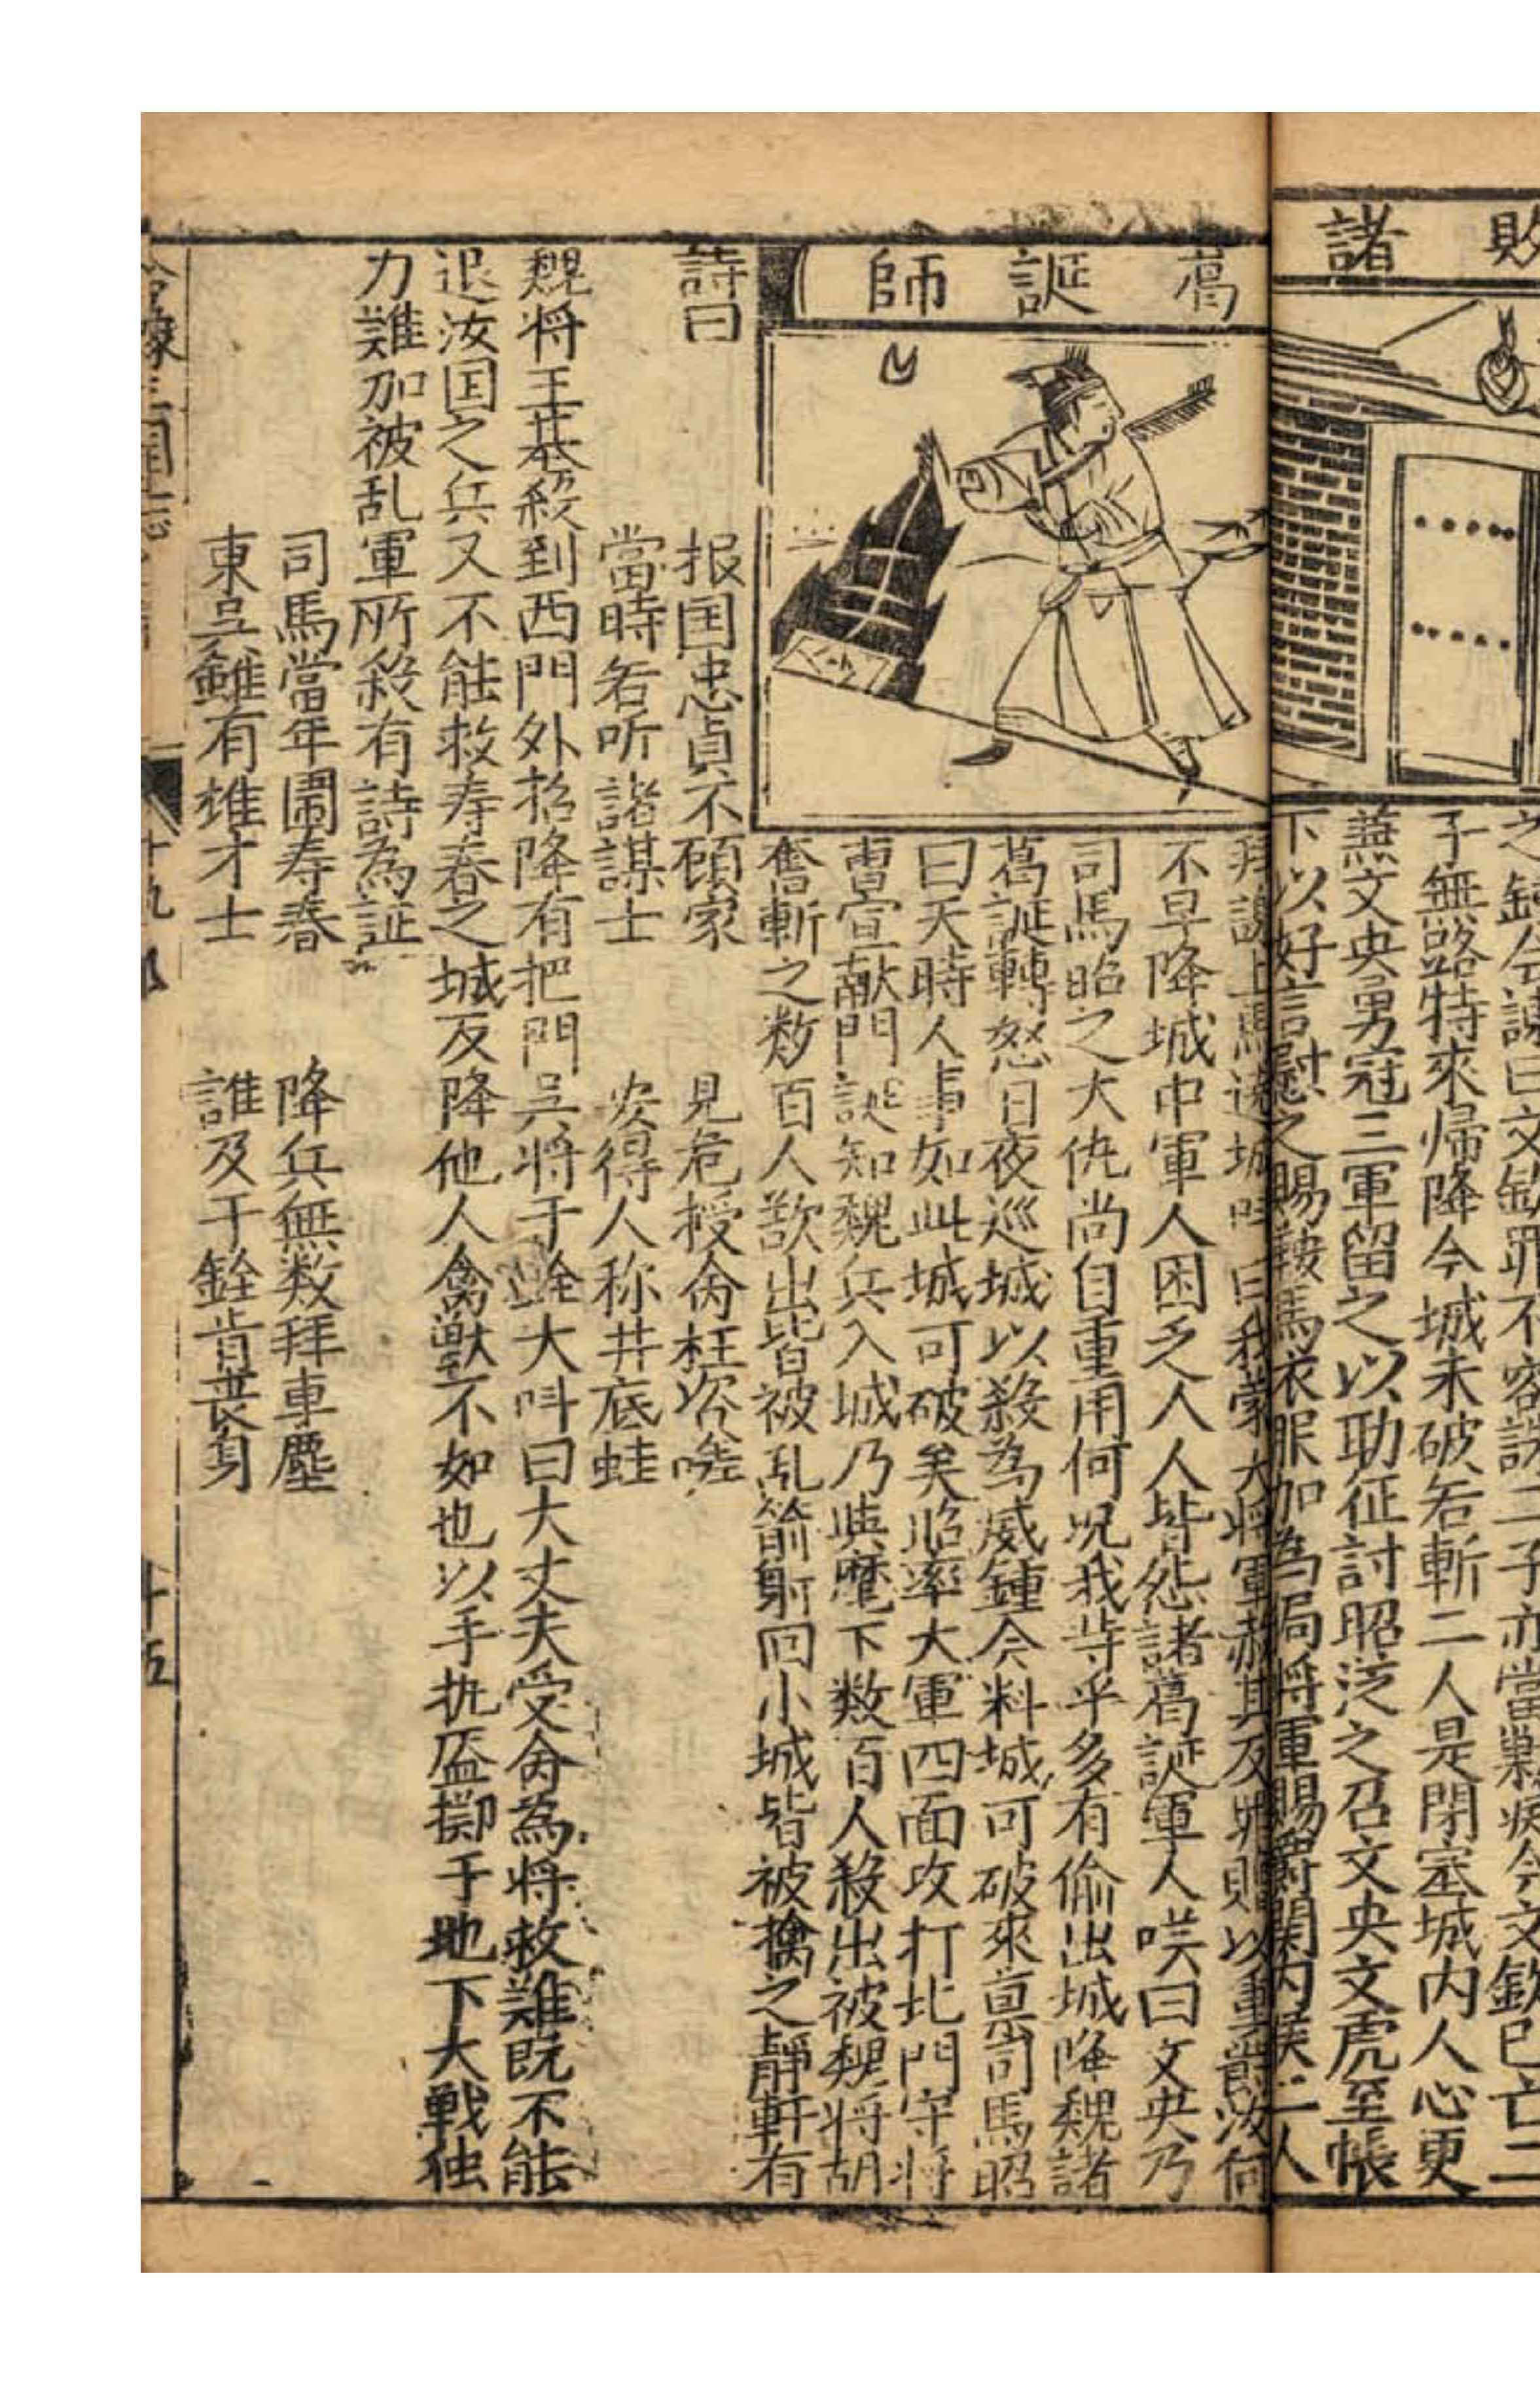 敗　諸
之鍾会諫曰文欽罪不容誅二子亦當勦疾今文欽已亡二
子無路特來帰降今城未破若斬二人是閉塞城内人心更
燕文央勇冠三軍留之以助征討昭泛之召文央文虎至帳
下以好言慰之賜鞍馬衣服加為扁将軍賜爵関内侯二人
葛　誕　師
拜謝上馬遶城叫曰我蒙大将軍赦其反罪賜以重爵汝何
不早降城中軍人困乏人人皆怨諸葛誕軍人哭曰文央乃
司馬昭之大仇尚自重用何况我等乎多有偷出城降魏諸
葛誕轉怒日夜巡城以殺為威鍾会料城可破來禀司馬昭
曰天時人事如此城可破矣昭率大軍四面攻打北門守将
曹宣献門誕知魏兵入城乃與麾下数百人殺出被魏将胡
奮斬之数百人歎出皆被乱箭射回小城皆被擒之靜軒有
詩曰　报囯忠貞不顧家　見危授命枉咨嗟
當時若听諸謀士　安得人称井底蛙
魏将王基殺到西門外招降有把門吳将于詮大呌曰大丈夫受命為将救難既不能
退汝囯之兵又不能救寿春之城反降他人禽獸不如也以手扯盔擲于地下大戰独
力難加被乱軍所殺有詩為証
司馬當年圍寿春　降兵無数拜車塵
東吳雖有雄才士　誰及于銓肯丧身
三囯志
十九
十五